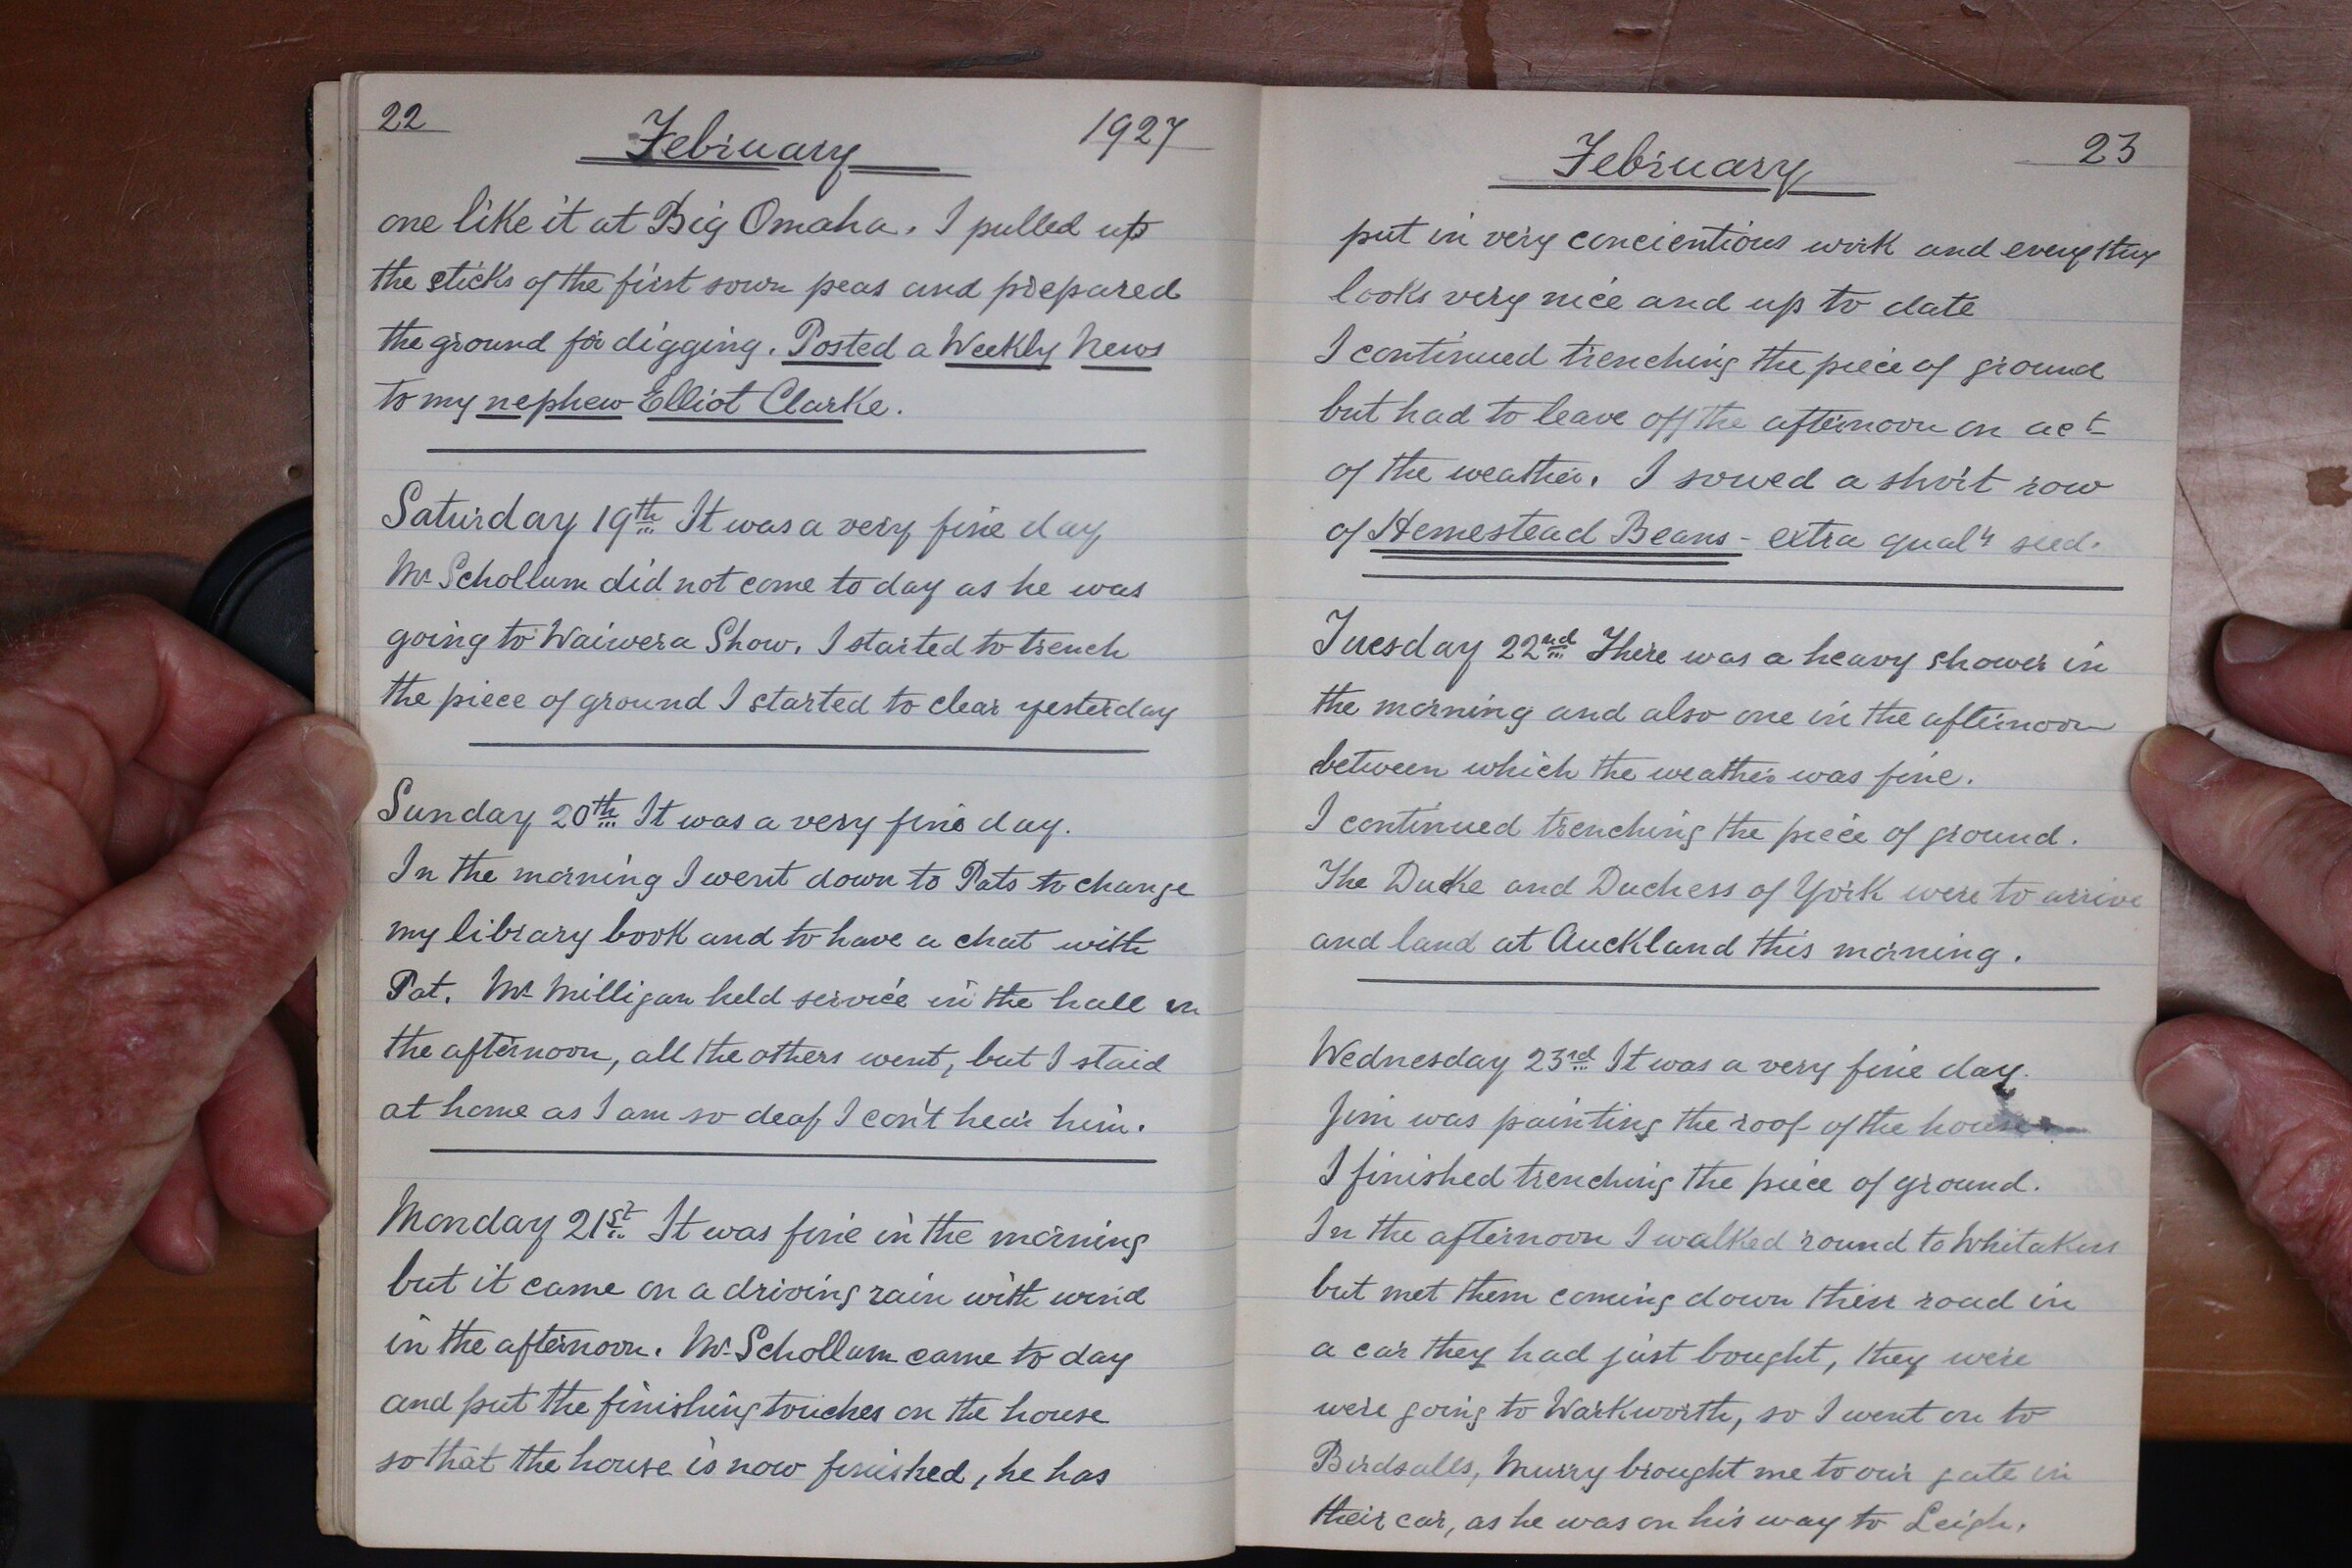 22
February
1927
one like it at Big Omaha. I pulled up
the sticks of the first sown peas and prepared
the ground for digging. Posted a Weekly News
to my nephew Elliot Clarke.
Saturday 19th It was a very fine day
Mr Schollum did not come to day as he was
going to Waiwera Show. I started to trench
the piece of ground I started to clear yesterday
Sunday 20th It was a very fine day.
In the morning I went down to Pats to change
my library book and to have a chat with
Pat. Mr Milligan held service in the hall in
the afternoon, all the others went, but I staid
at home as I am so deaf I con't hear him.
Monday 21st It was fine in the morning
but it came on a driving rain with wind
in the afternoon. Mr Schollum came to day
and put the finishing touches on the house
so that the house is now finished, he has
February
23
put in very concientious work and every thing
looks very nice and up to date
I continued trenching the piece of ground
but had to leave off the afternoon on act
of the weather. I sowed a short row
of Homestead Beans - extra qualy seed.
Tuesday 22nd There was a heavy shower in
the morning and also one in the afternoon
between which the weather was fine.
I continued trenching the piece of ground.
The Duke and Duchess of York were to arrive
and land at Auckland this morning.
Wednesday 23rd It was a very fine day.
Jim was painting the roof of the house
I finished trenching the piece of ground.
In the afternoon I walked round to Whitakers
but met them coming down their road in
a car they had just bought, they were
were going to Warkworth, so I went on to
Birdsalls, Murry brought me to our gate in
their car, as he was on his way to Leigh.